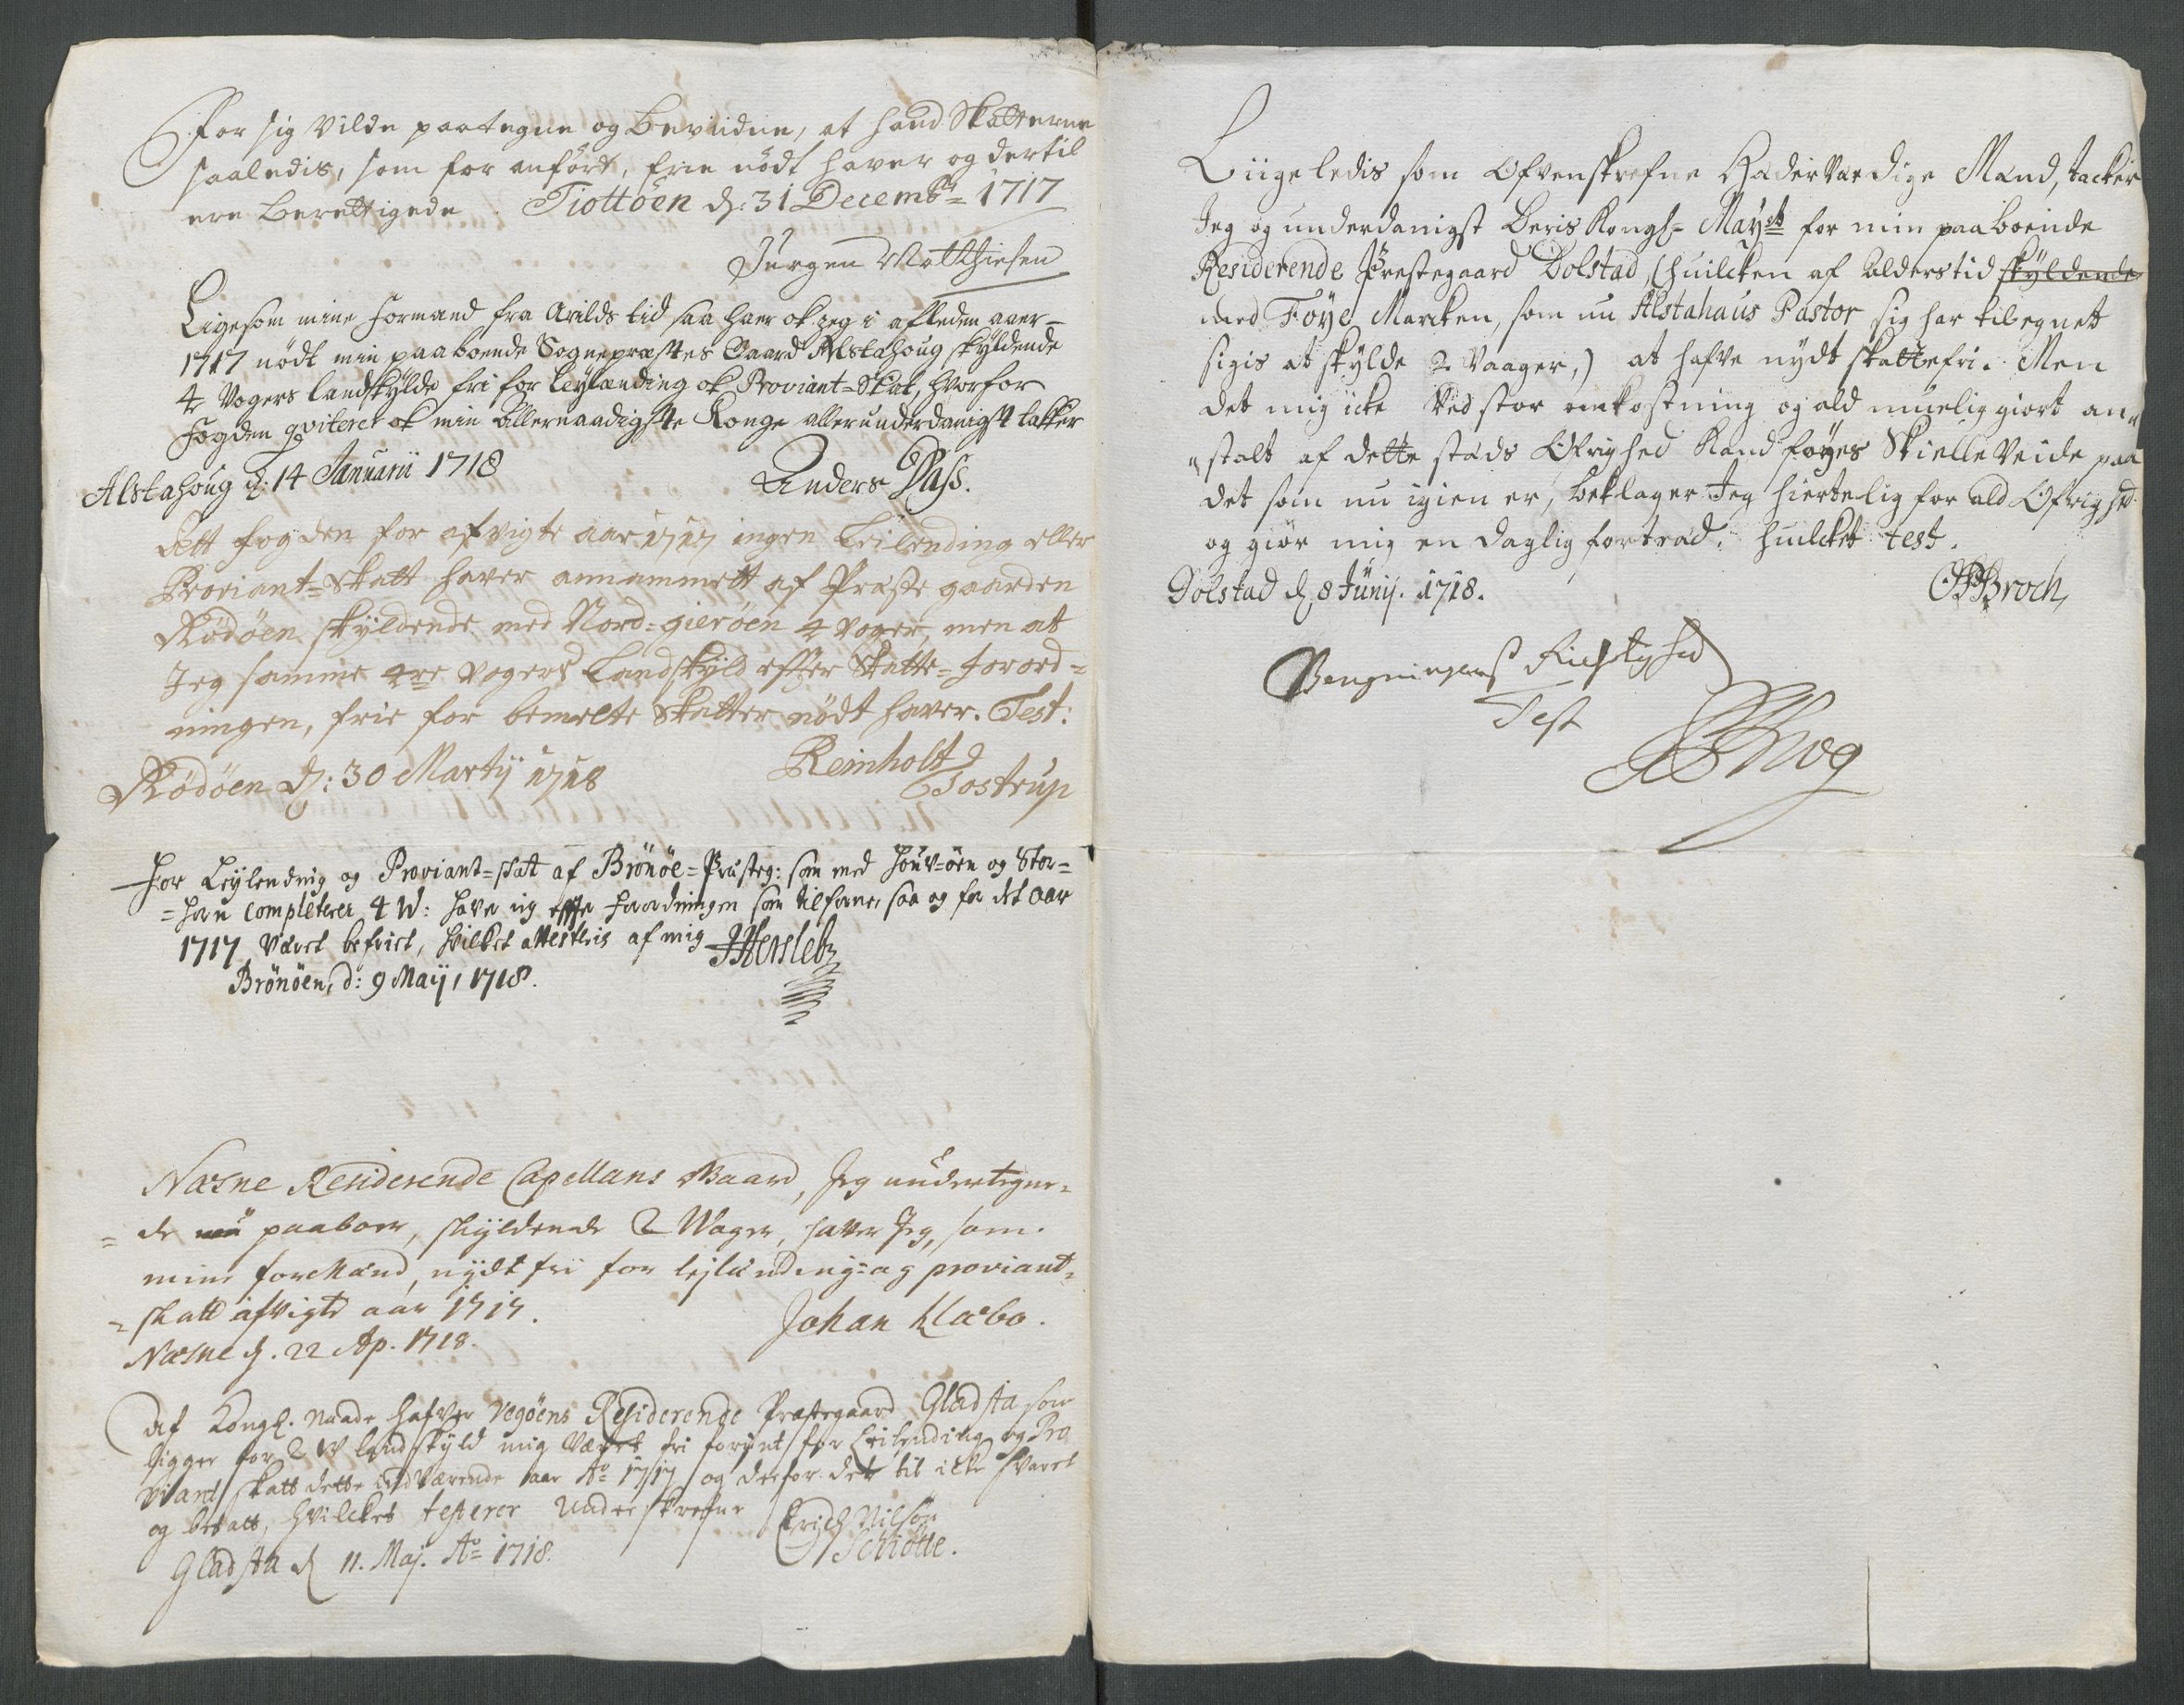 for sig vilde paategne og beviidne, at hand Skatterne
saaledis, som for anfört, frie nödt haver og dertil
ere berettigede. Tiottöen d: 31 Decembr 1717
Jurgen Matthiesen
Ligesom mine Formænd fra Arilds tid saa haer ok jeg i afleden aaer
1717 nödt min paaboende Sognepræstes Gaard Alstahoug skyldende
4 Vogers landskyld fri for Leylænding ok Proviant-Skat, hvorfor
Fogden qviteres ok min Allernaadigste Konge allerunderdanigst takker
Alstahoug d: 14 Januarii 1718
Anders Dass.
Att fogden for afvigte aar 1717 ingen Leilending eller
Proviant-Skatt haver annammett af Præste gaarden
Rödöen skyldende med Nord-gieröen 4 voger, men at
Jeg samme 4re vogers Landskyld effter Skatte-Forord-
ningen, frie for bemelte Skatter nödt haver. Test:
Rödöen d: 30 Martij 1718
Reinholt
Tostrup
For Leylending og Proviant-skatt af Brönöe-Præsteg: som med Houv-öen og Stor-
=horn completerer 4 W: haver jeg effter Forordningen som tilforne, saa og for det aar
1717 været befriet, hvilket attesteris af mig JHersleb
Brönöen, d: 9 Maij, 1718.
Næsne Residerende Capellans Gaard, Jeg undertegne-
=de nu paaboer, skyldende 2 Wager, haver Jeg, som
mine forMænd, nydt fri for lejlænding- og proviant-
=skatt afvigte aar 1717.
Johan Klæbo.
Næsne d. 22 Ap. 1718.
Af Kongl. Naade hafver Vegöens Residerende Præstegaard Gladsta som
ligger for 2 W landskyld mig været fri forundt for Leilending og Pro
viant skatt dette indværende aar Ao 1717 og derfor der til icke svaret
og betalt, hvilcket testerer Underskrefne
Erich Nilsön
Schiötte.
Gladsta d 11. Maj. Ao 1718.
Liigeledis som Ofvenskrefne Hæderværdige Mænd, tacker
Jeg og underdanigst Deris Kongl- Mayst for min paaboende
Residerende Præstegaard Dolstad, (huilcken af Alderstid skyldende
med Föye Marcken, som nu Alstahaus Pastor sig har tilegnet
sigis at skylde 2 Vaager,) at hafve nydt skattefri. Men
det mig icke ved stor omkostning og ald mueliggiort an"
"stalt af dette stæds Öfrighed Kand föyes Skielle Veide paa
det som nu igien er, beklager Jeg hiertelig for ald Öfrighed
og giör mig en daglig fortræd. huilcket test.
Dolstad d. 8 Junij. 1718.
OPBroch,
Gengningens Richtighed
Test